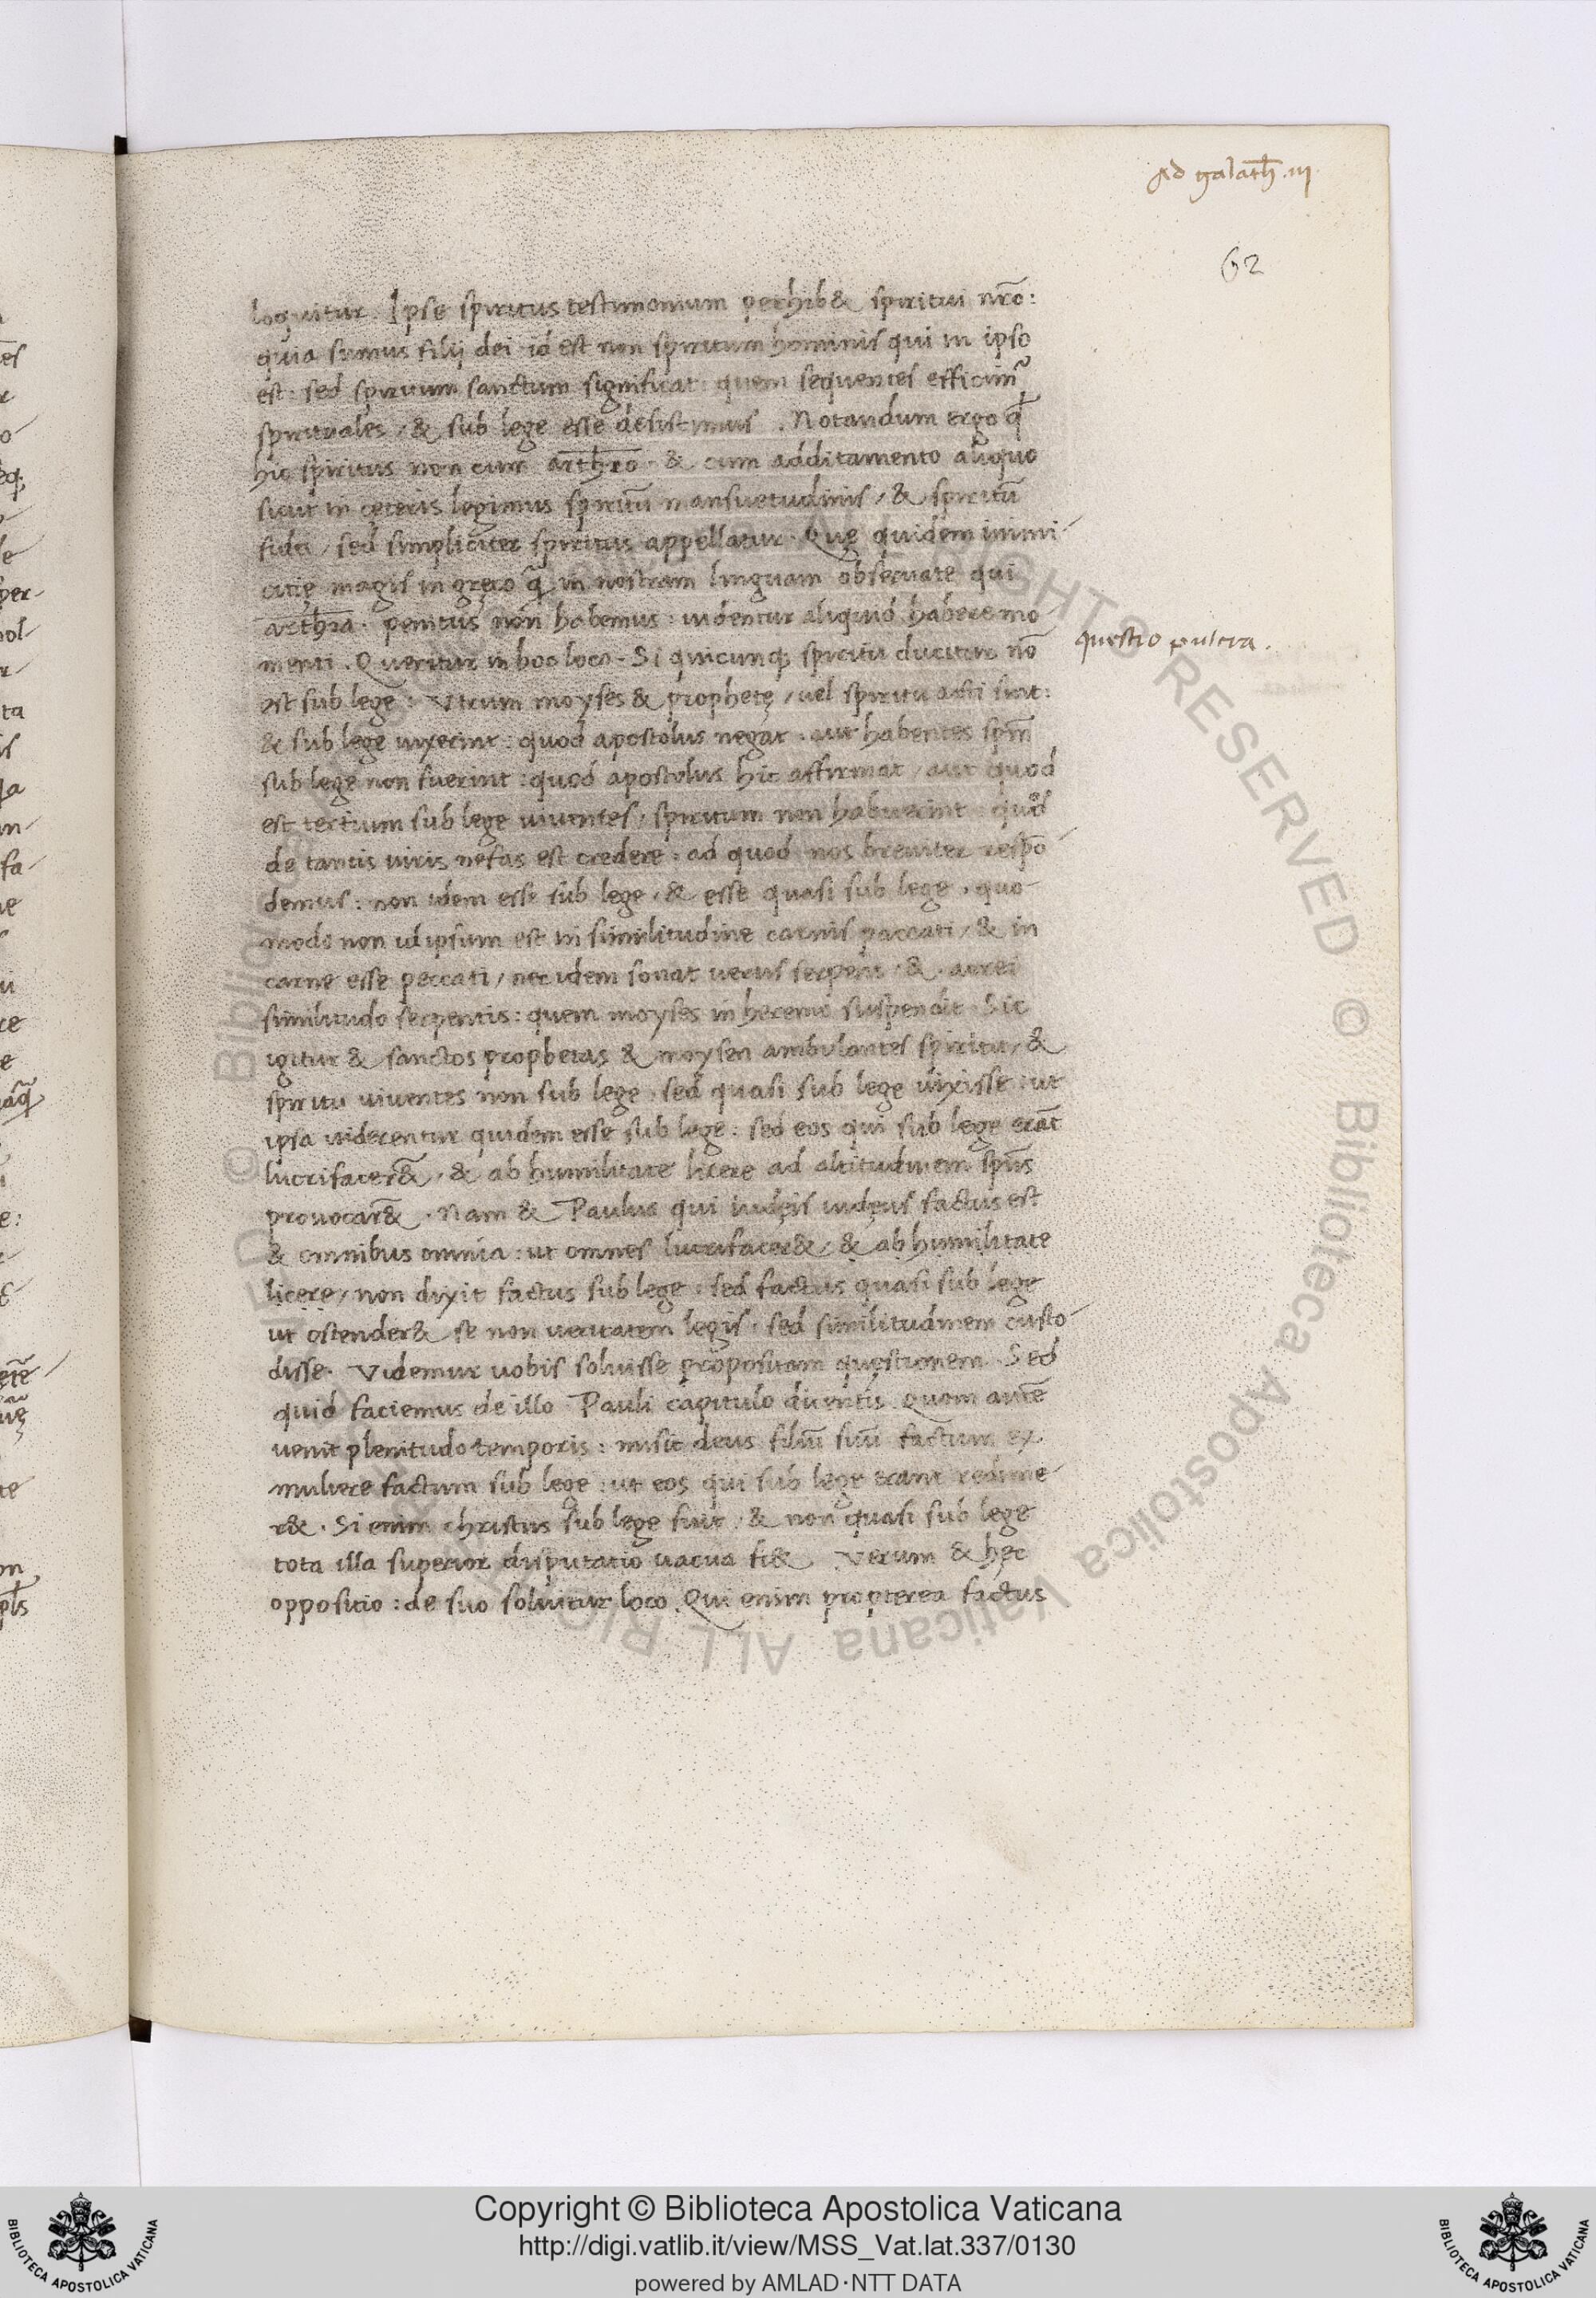 Ad galath̄. .iij.
62
loquitur. Ipse spiritus testimonium perhib& spiritui nr̄o:
quia sumus filij dei. id est non spiritum hominis qui in ipso
est: sed spiritum sanctum significat: quem sequentes efficim̃
spirituales, & sub lege esse desistimus. Notandum ergo ꝙ
hic spiritus non cum arthro. & cum additamento aliquo
sicut in ceteris legimus spiritū mansuetudinis, & spiritū
fidei, sed simpliciter spiritus appellatur. Quę quidem inimi
citię magis in gręco ꝙ in nostram linguam obseruate qui
arthra. penitus non habemus: uidentur aliquid habere mo
menti. Queritur in hoc loco. Si quicunq; spiritu ducitur nō
est sub lege: Vtrum moyses & prophetę, uel spiritu acti sint:
& sub lege uixerint: quod apostolus negat. aut habentes spm̄
sub lege non fuerint: quod apostolus hic affirmat, aut quod
est tertium sub lege uiuentes, spiritum non habuerint quod
de tantis uiris nefas est credere. ad quod nos breuiter respō
demus: non idem esse sub lege, & esse quasi sub lege. quo
modo non id ipsum est in similitudine carnis paccati, & in
carne esse peccati, nec idem sonat uerus serpens, & aerei
similitudo serpentis: quem moyses in heremo suspendit. Sic
igitur & sanctos prophetas & moysen ambulantes spiritu, &
spiritu uiuentes non sub lege. sed quasi sub lege uixisse: ut
ipsa uiderentur quidem esse sub lege: sed eos qui sub lege erāt
lucrifacer&, & ab humilitate licere ad altitudinem spūs
prouocar&. Nam & Paulus qui iudęis iudęus factus est
& omnibus omnia: ut omnes lucrifacer&, & ab humilitate
licere, non dixit factus sub lege: sed factus quasi sub lege
ut ostender& se non ueritatem legis. sed similitudinem custo
disse. Videmur uobis soluisse propositam quęstionem. Sed
quid faciemus de illo Pauli capitulo dicentis. Quom autē
uenit plenitudo temporis: misit deus filiū suū factum ex
muliere factum sub lege: ut eos qui sub lege erant redime
r&. Si enim christus sub lege fuit. & non quasi sub lege
tota illa superior disputatio uacua fi& Verum & hęc
oppositio: de suo soluitur loco. Qui enim propterea factus
questio pulcra.
Copyright © Biblioteca Apostolica Vaticana
http://digi.vatlib.it/view/MSS_Vat.lat.337/0130
powered by AMLAD·NTT DATA